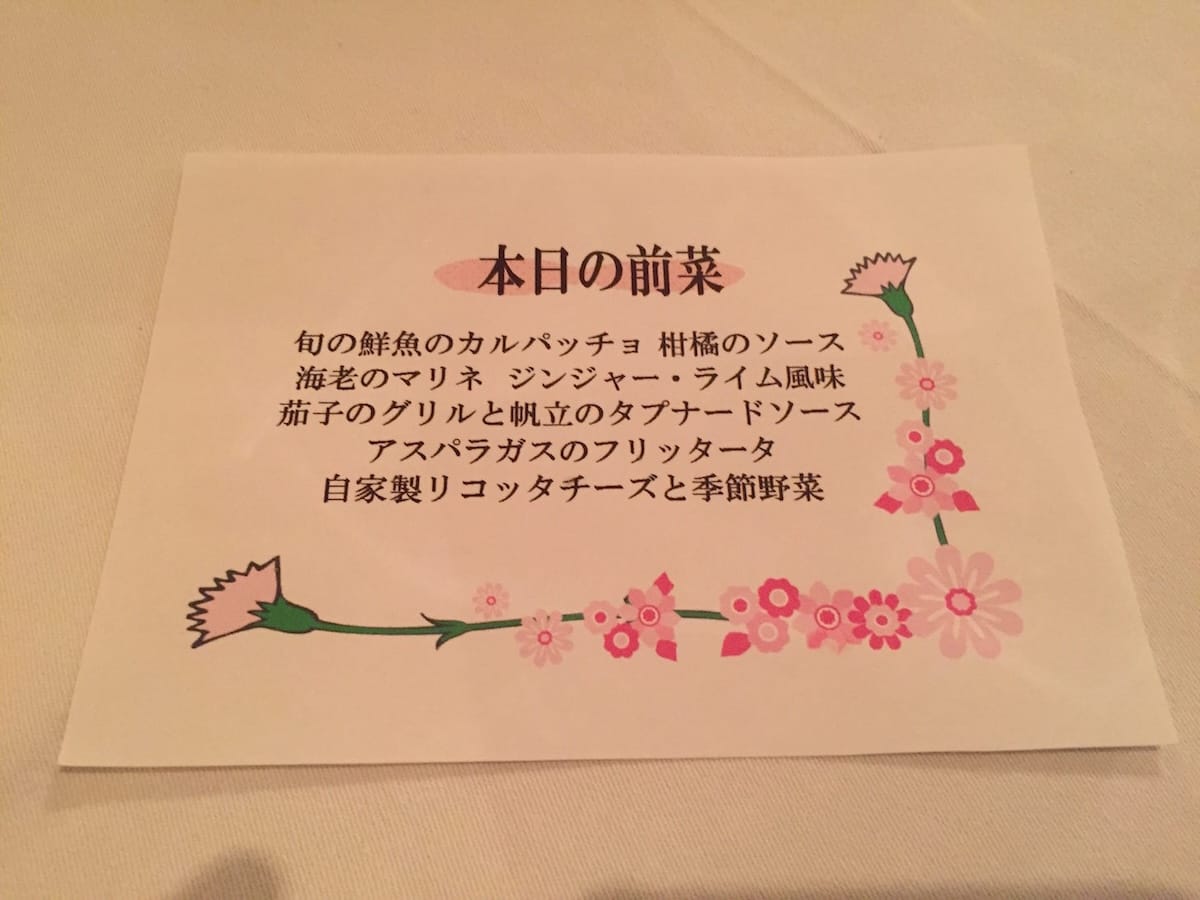 本日の前菜
旬の鮮魚のカルパッチョ 柑橘のソース
海老のマリネ ジンジャー・ライム風味
茄子のグリルと帆立のタプナードソース
アスパラガスのフリッタータ
自家製リコッタチーズと季節野菜